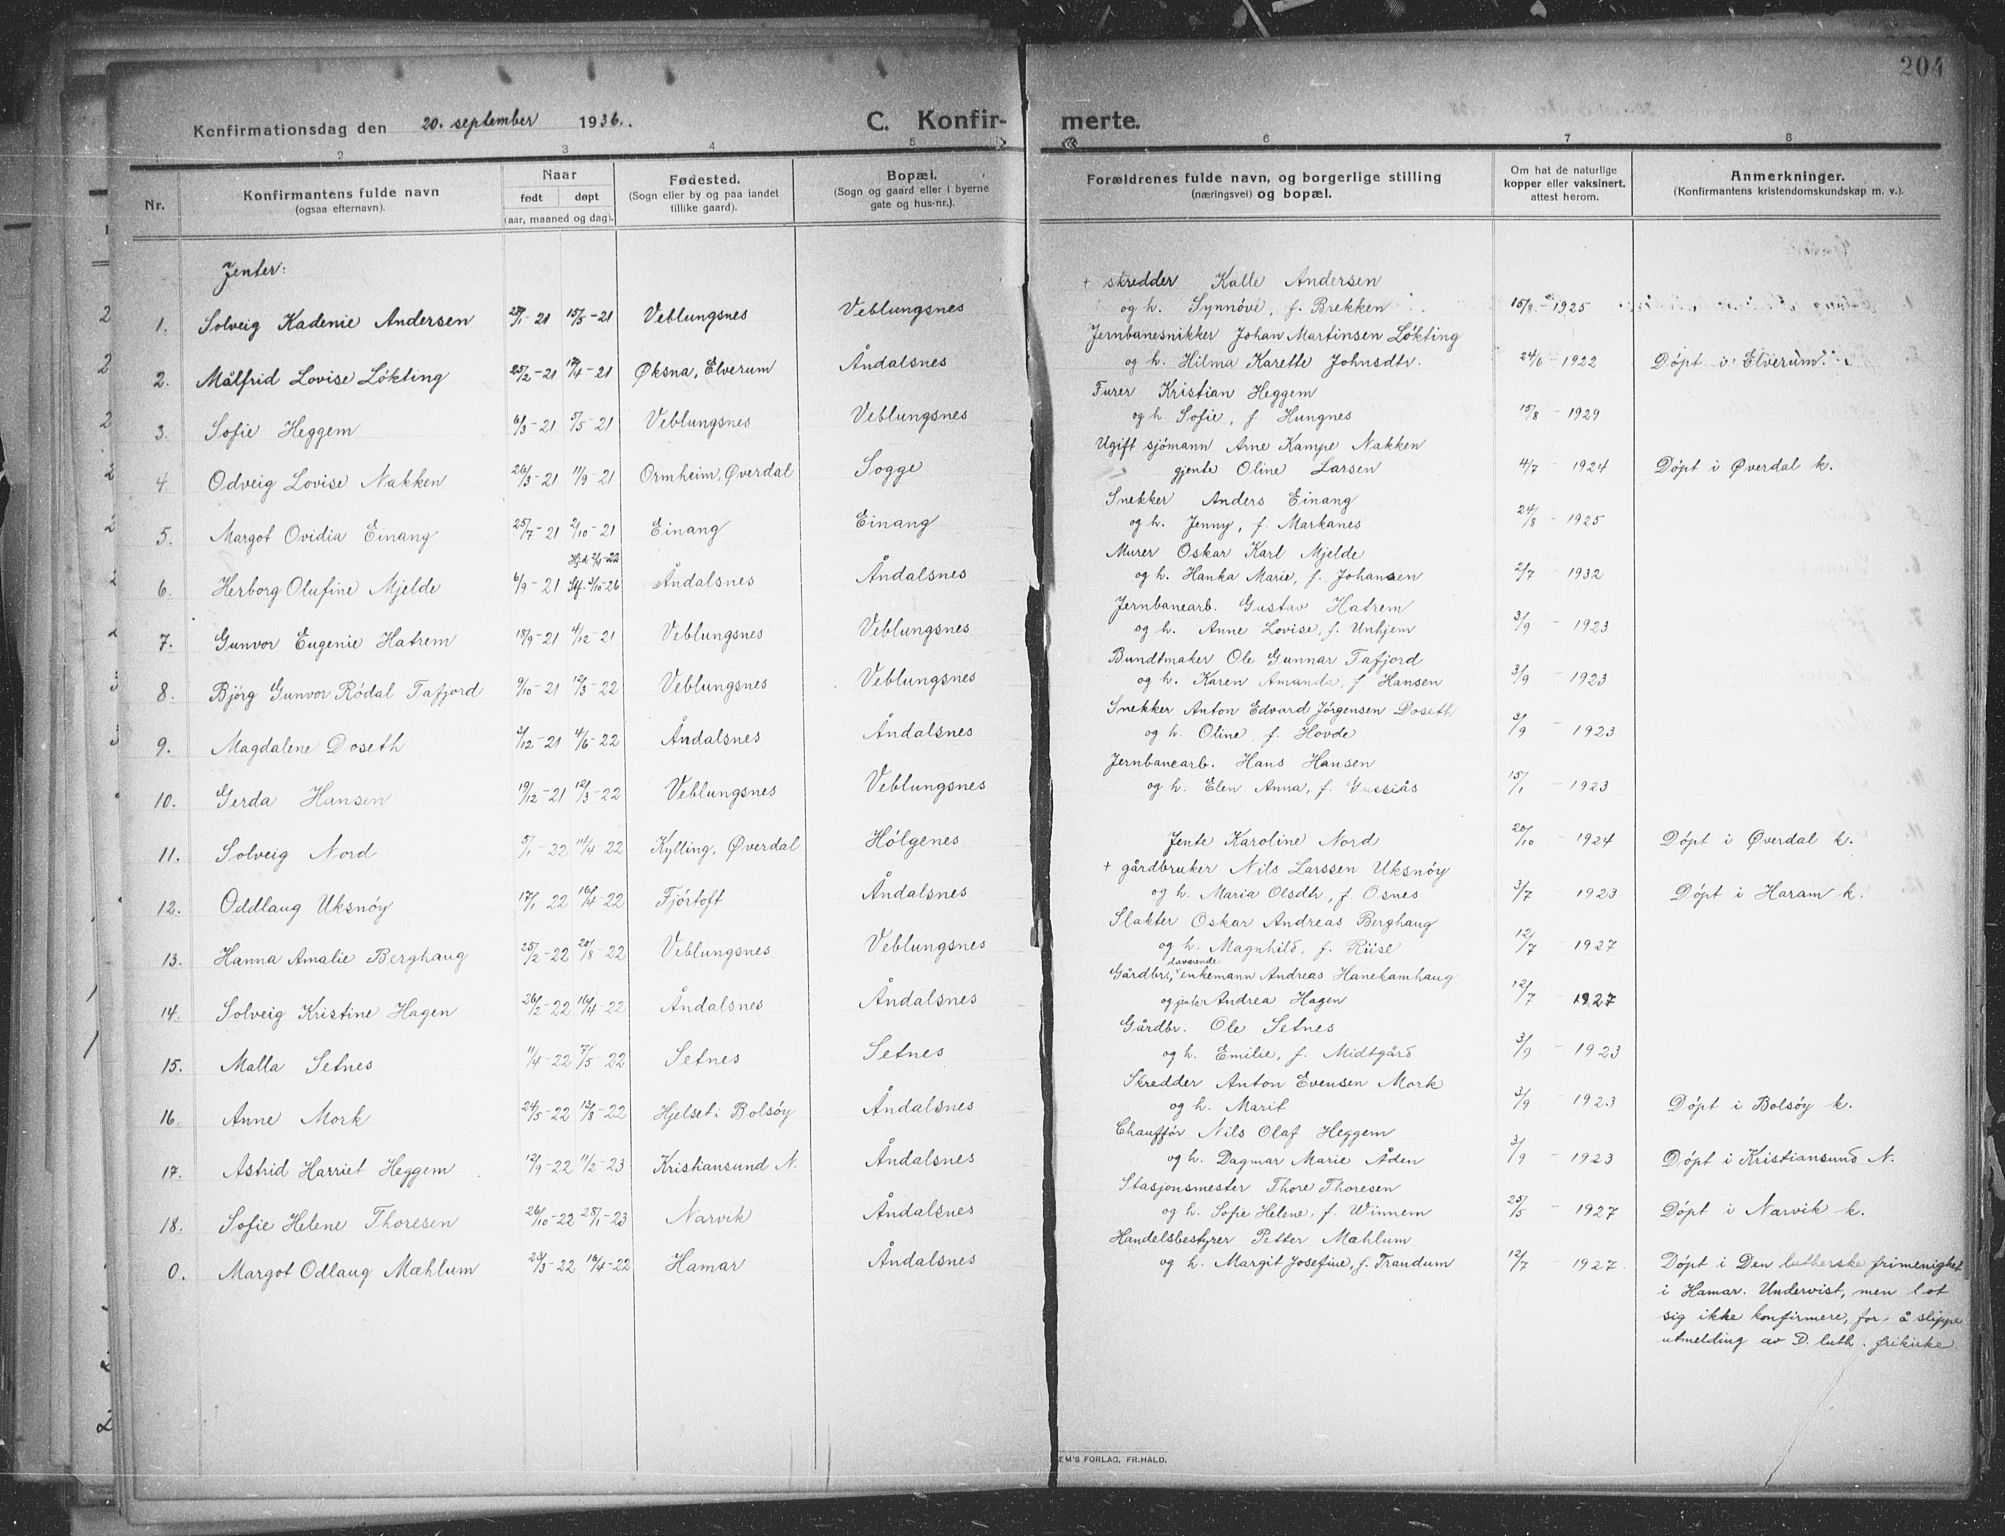 204
Konfirmationsdag den 20. september 1936.
C. Konfir- merte.
1 2 3 4 5 6 7 8
Nr.
Konfirmantens fulde navn
(ogsaa efternavn).
Naar
født døpt
(aar, maaned og dag).
Fødested.
(Sogn eller by og paa landet
tillike gaard).
Bopæl.
(Sogn og gaard eller i byerne
gate og hus-nr.).
Forældrenes fulde navn, og borgerlige stilling
(næringsvei) og bopæl.
Om hat de naturlige
kopper eller vaksinert,
attest herom.
Anmerkninger.
(Konfirmantens kristendomskundskap m. v.).
Jenter:
+ skredder Kalle Andersen
1. Solveig Kadenie Andersen 15/5-21 Veblungsnes Veblungsnes og h. Synnöve, f. Brekken 15/8 - 1925
Jernbanesnikker Johan Martinsen Lökting
2. Målfrid Lovise Lökting 25/2-21 17/4-21 Øksna, Elverum Åndalsnes og h. Hilma Karette Johnsdtr. 24/6 - 1922 Döpt i Elverum.
Furer Kristian Heggem
3. Sofie Heggem 6/3-21 5/5-21 Veblungsnes Veblungsnes og h. Sofie, f. Hungnes 15/8 - 1929
Ugift sjömann Arne Kampe Nakken
4. Odveig Lovise Nakken 26/3-21 11/9-21 Ormheim, Øverdal Sogge gjente Oline Larsen 4/7 - 1924 Döpt i Øverdal k.
Snekker Anders Einang
5. Margot Ovidia Einang 25/7-21 2/10-21 Einang Einang og h. Jenny, f. Markanes 24/8 - 1925
Murer Oskar Karl Mjelde
6. Herborg Olufine Mjelde 6/9-21 Åndalsnes Åndalsnes og h. Hanka Marie, f. Johansen 2/7 - 1932
Jernbanearb. Gustav Hatrem
7. Gunvor Eugenie Hatrem 18/9-21 4/12-21 Veblungsnes Veblungsnes og h. Anne Lovise, f. Unhjem 3/9 - 1923
Bundtmaker Ole Gunnar Tafjord
8. Björg Gunvor Rödal Tafjord 9/10-21 12/3-22 Veblungsnes Veblungsnes og h. Karen Amanda, f. Hansen 3/9 - 1923
Snekker Anton Edvard Jörgensen Doseth
9. Magdalene Doseth 4/6-22 Åndalsnes Åndalsnes og h. Oline, f. Hovde 3/9 - 1923
Jernbanearb. Hans Hansen
10. Gerda Hansen 19/12-21 12/3-22 Veblungsnes Veblungsnes og h. Elen Anna, f. Gussiås 15/1 - 1923
11. Solveig Nord 5/1-22 17/4-22 Kylling, Øverdal Hölgenes Jente Karoline Nord 20/10 - 1924 Döpt i Øverdal k.
+ gårdbruker Nils Larssen Uksnöy
12. Oddlaug Uksnöy 17/1-22 16/4-22 Fjörtoft Åndalsnes og h. Maria Olsdtr., f. Osnes 3/7 - 1923 Döpt i Haram k.
Slakter Oskar Andreas Berghaug
13. Hanna Amalie Berghaug 25/2-22 20/8-22 Veblungsnes Veblungsnes og h. Magnhild, f. Riise 12/7 - 1927
Gårdbr., daværende enkemann Andreas Hanekamhaug
14. Solveig Kristine Hagen 26/2-22 16/4-22 Åndalsnes Åndalsnes og jente Andrea Hagen 12/7 - 1927
Gårdbr. Ole Setnes
15. Malla Setnes 11/4-22 7/5-22 Setnes Setnes og h. Emilie, f. Midtgård 3/9 - 1923
Skredder Anton Evensen Mork
16. Anne Mork 24/5-22 13/8-22 Hjelset i Bolsöy Åndalsnes og h. Marit 3/9 - 1923 Döpt i Bolsöy k.
Chaufför Nils Olaf Heggem
17. Astrid Harriet Heggem 12/9-22 11/2-23 Kristiansund N. Åndalsnes og h. Dagmar Marie Åden 3/9 - 1923 Döpt i Kristiansund N.
Stasjonsmester Thore Thoresen
18. Sofie Helene Thoresen 26/10-22 28/1-23 Narvik Åndalsnes og h. Sofie Helene, f. Winnem 25/5 - 1927 Döpt i Narvik k.
Handelsbestyrer Petter Mæhlum
0. Margot Odlaug Mæhlum 23/3-22 16/4-22 Hamar Åndalsnes og h. Margit Josefine, f. Trandum 12/7 - 1927. Döpt i Den lutherske frimenighet
i Hamar. Undervist, men lot
sig ikke konfirmere, for å slippe
utmelding av D. luth. frikirke
EM'S FORLAG, FR. HALD.